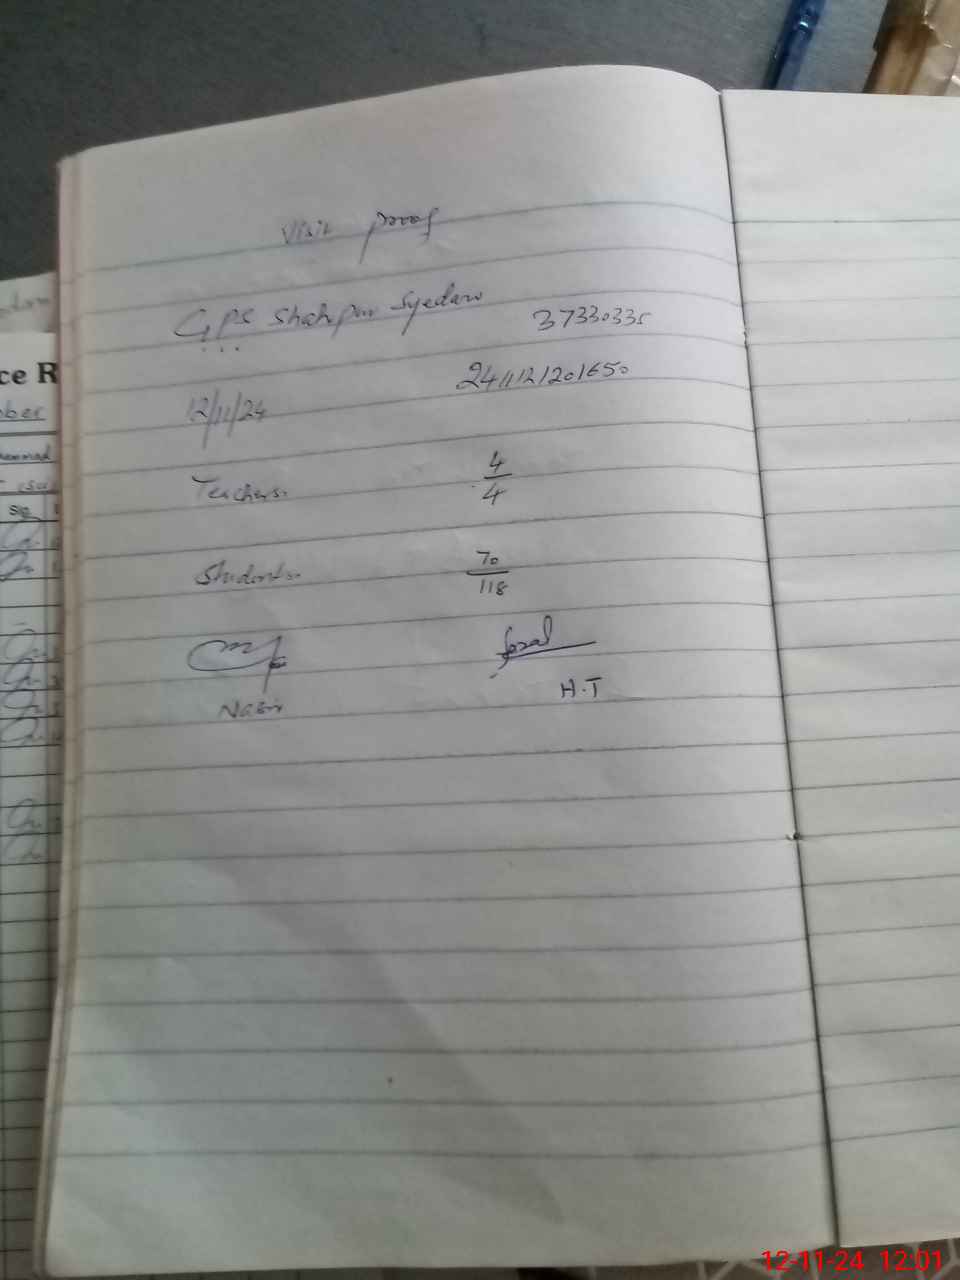 Visit proof
GPS Shahpur Syedan 37330335
12/11/24 2411121201650
Teachers. 4/4
Students. 70/118
Nasir H.T
ce R
ober
12-11-24 12:01